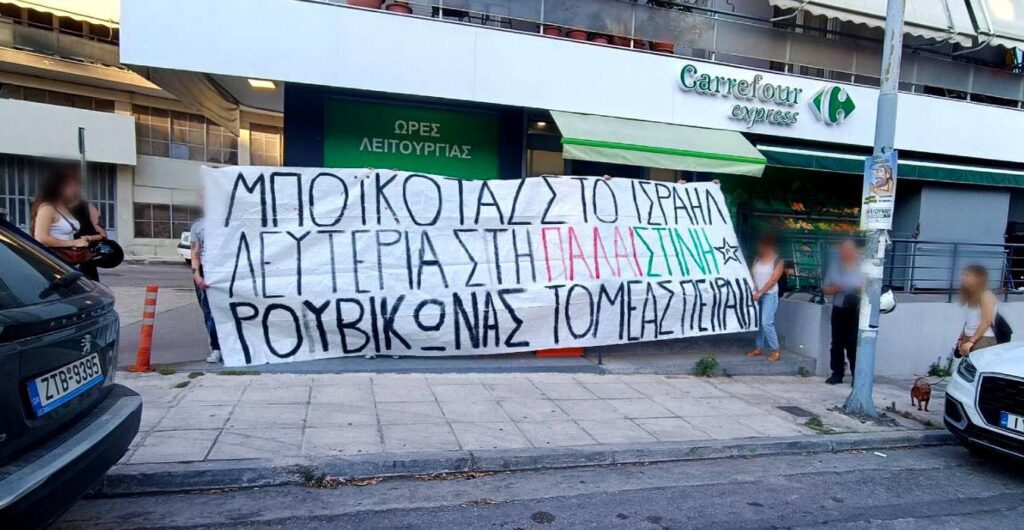 Carrefour
express
ΩΡΕΣ
ΛΕΙΤΟΥΡΓΙΑΣ
ΜΠΟΪΚΟΤΑΖ ΣΤΟ ΙΣΡΑΗΛ
ΛΕΥΤΕΡΙΑ ΣΤΗ ΠΑΛΑΙΣΤΙΝΗ
ΡΟΥΒΙΚΩΝΑΣ ΤΟΜΕΑΣ ΠΕΙΡΑΙΑ
ZTB 9395